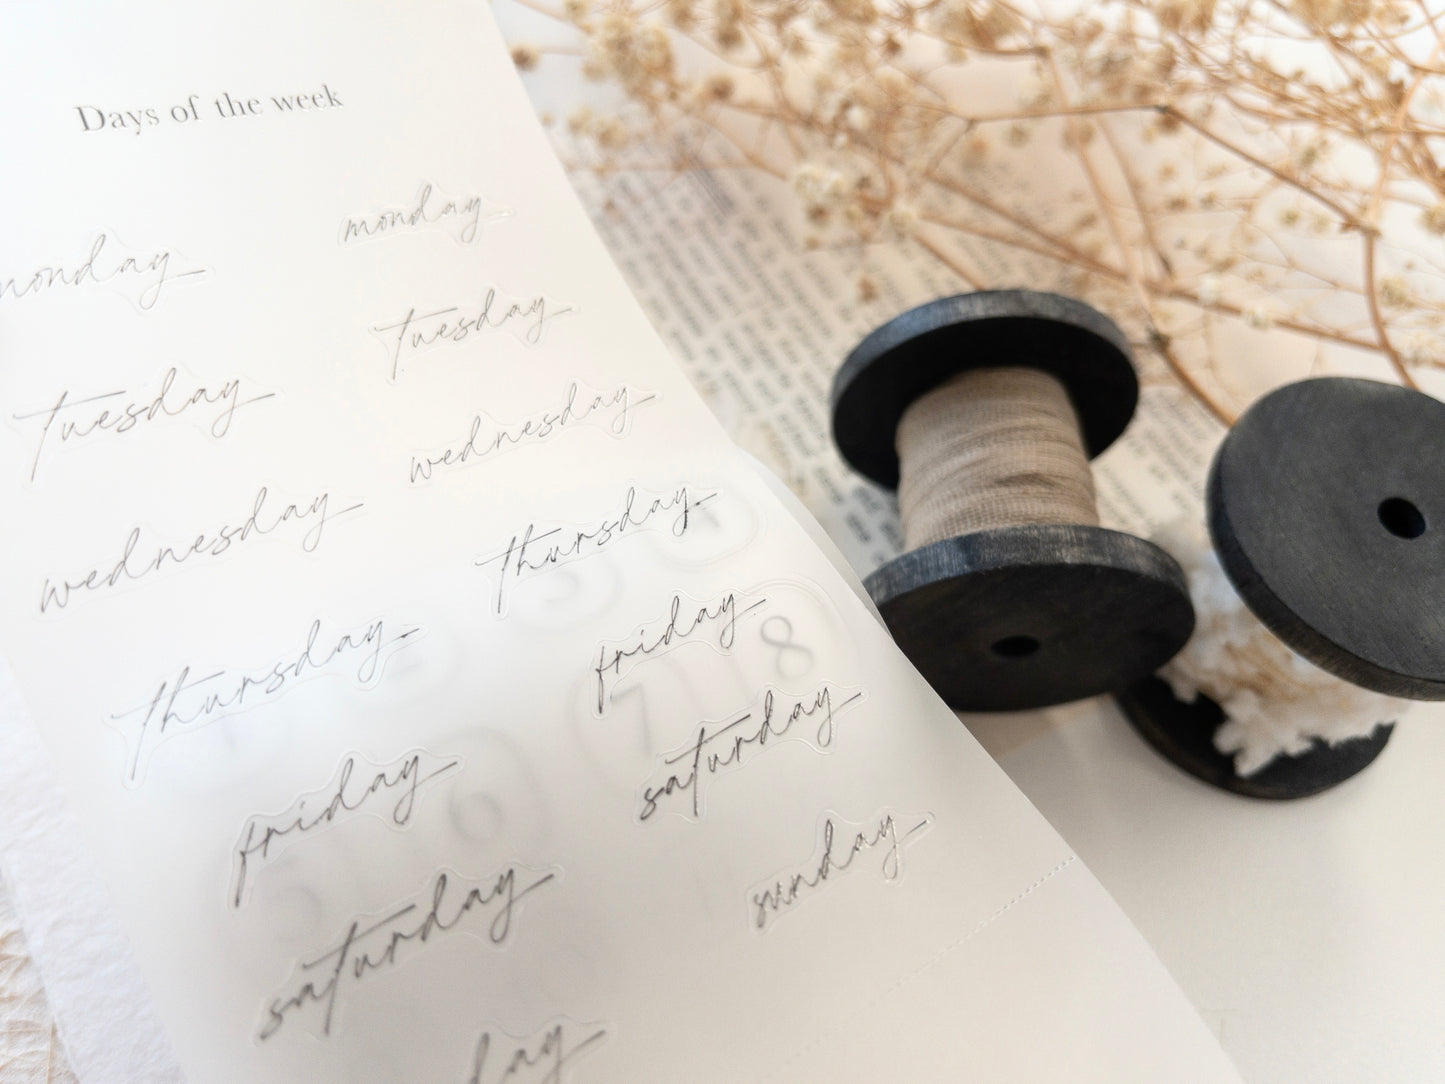 Days of the week
monday monday
tuesday tuesday
wednesday wednesday
thursday thursday
friday friday
saturday saturday
day sunday
3 4
7 8
6